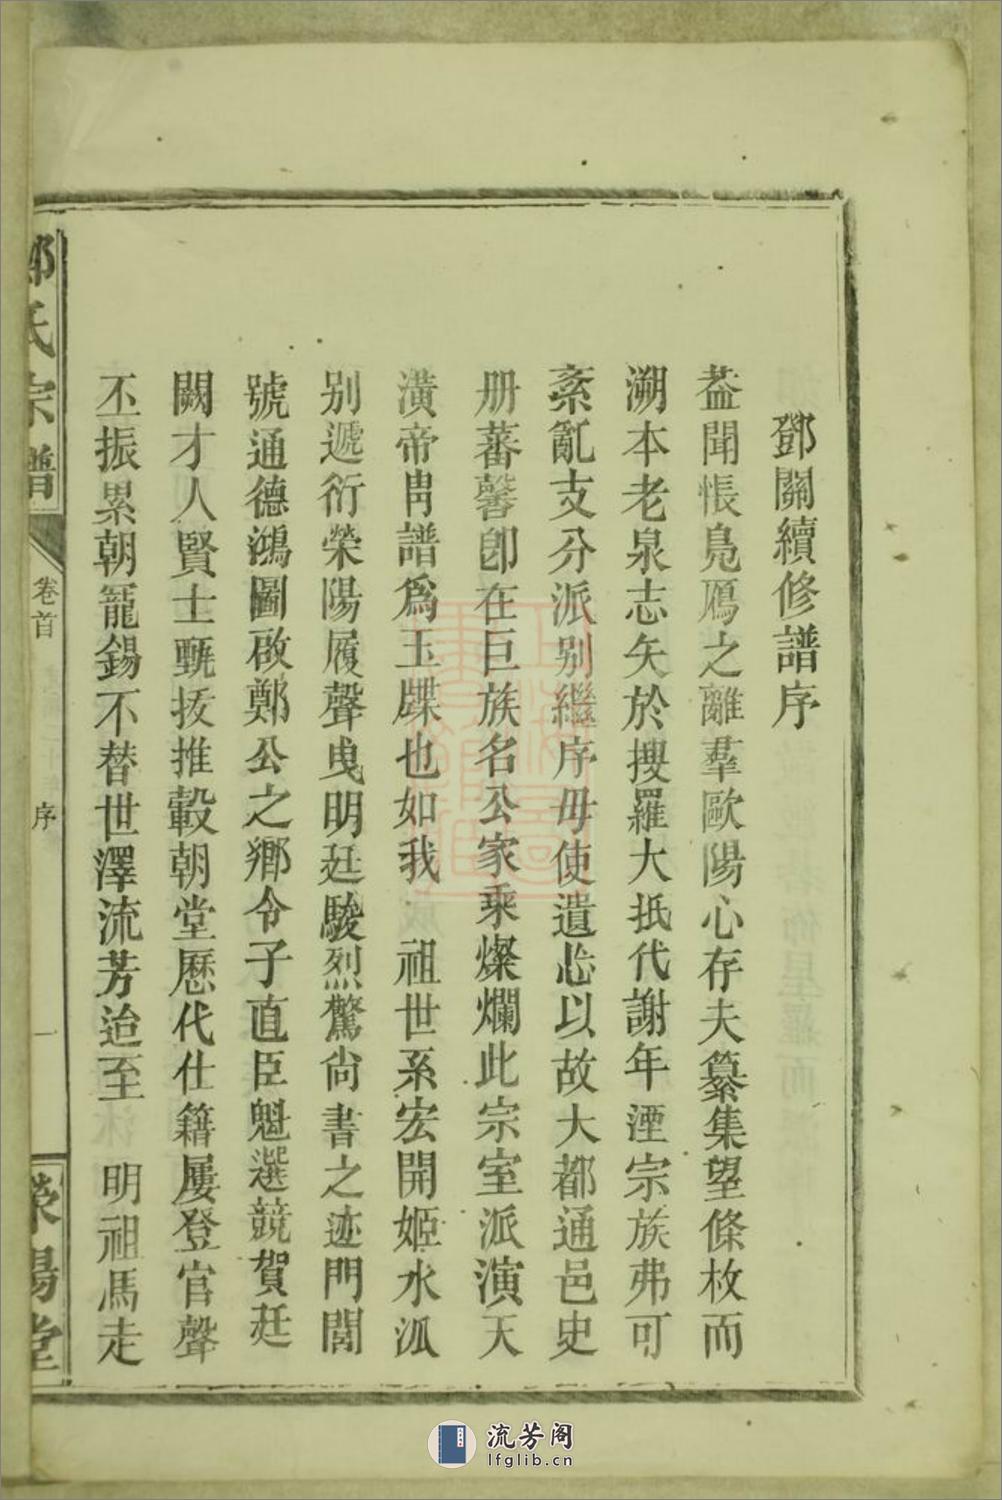 鄧關續修譜序
葢聞悵鳧鴈之離羣歐陽心存夫纂集望條枚而
溯本老泉志矢於搜羅大抵代謝年湮宗族弗可
紊亂支分派别繼序毋使遺忘以故大都通邑史
册蕃馨卽在巨族名公家乘燦爛此宗室派演天
潢帝胄譜爲玉牒也如我 祖世系宏開姬水派
别遞衍榮陽履聲曳明廷駿烈驚尙書之迹門閭
號通德鴻圖啟鄭公之鄉令子直臣魁選競賀廷
闕才人賢士甄拔推轂朝堂歷代仕籍屢登官聲
丕振累朝寵錫不替世澤流芳迨至 明祖馬走
鄭氏宗譜
卷首
序
一
滎陽堂
流芳阁
lfglib.cn